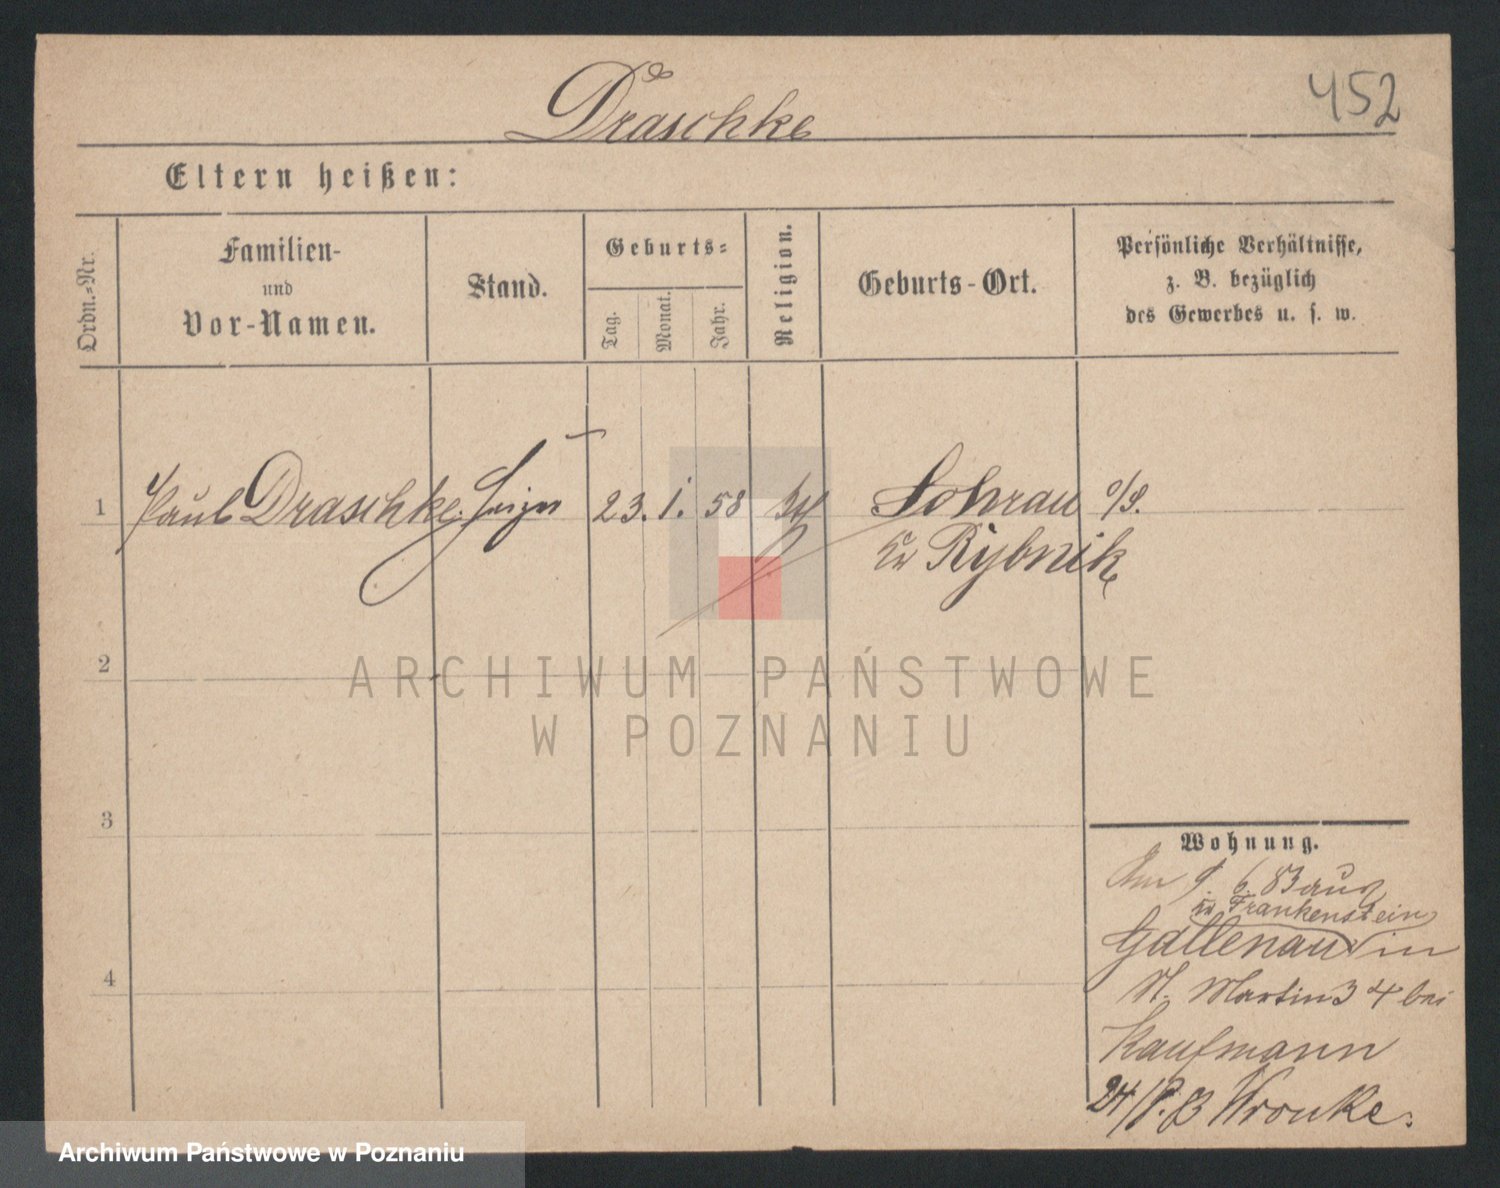 Draschke
452
Eltern heißen:
Ordn.-Nr.
Familien-
und
Vor-Namen.
Stand.
Geburts-
Tag.
Monat.
Jahr.
Religion.
Geburts-Ort.
Persönliche Verhältnisse,
z. B. bezüglich
des Gewerbes u. s. w.
1 Paul Draschke. 23. 1. 58 Sohrau o/S.
Kr Rybnik
2
ARCHIWUM PAŃSTWOWE
W POZNANIU
3
4
Wohnung.
Am 9. 6. 83 aus
Kr Frankenstein
Gallenau in
St. Martin 34 bei
Kaufmann
Wronke.
Archiwum Państwowe w Poznaniu